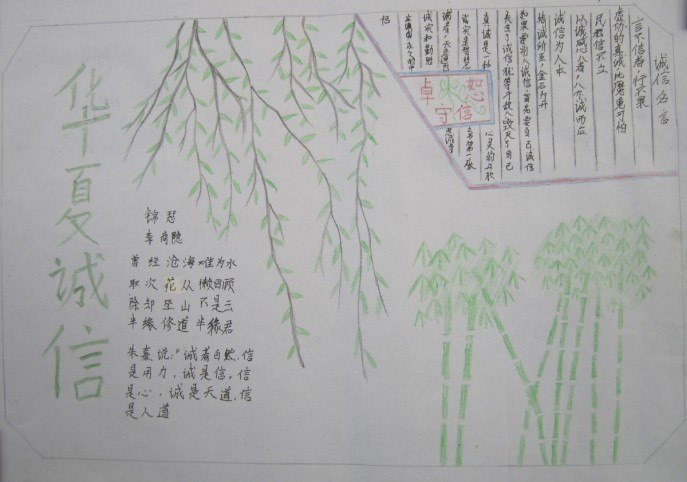 华夏诚信
锦瑟
李商隐
曾经沧海难为水
取次花从懒回顾
除却巫山不是云
半缘修道半缘君
朱熹说:“诚者自然,信
是用力,诚是信,信
是心,诚是天道,信
是人道
诚信名言
言不信者 行不果
虚伪的真诚比魔鬼可怕
民无信不立
以诚感人者,人亦诚而应
诚信为人本
精诚所至,金石为开
如果要别人诚信,首先要自己诚信
失去了诚信,就等于敌人毁灭了自己
真诚是一种
心灵的开放
诚实和勤勉
卓 恕
守信